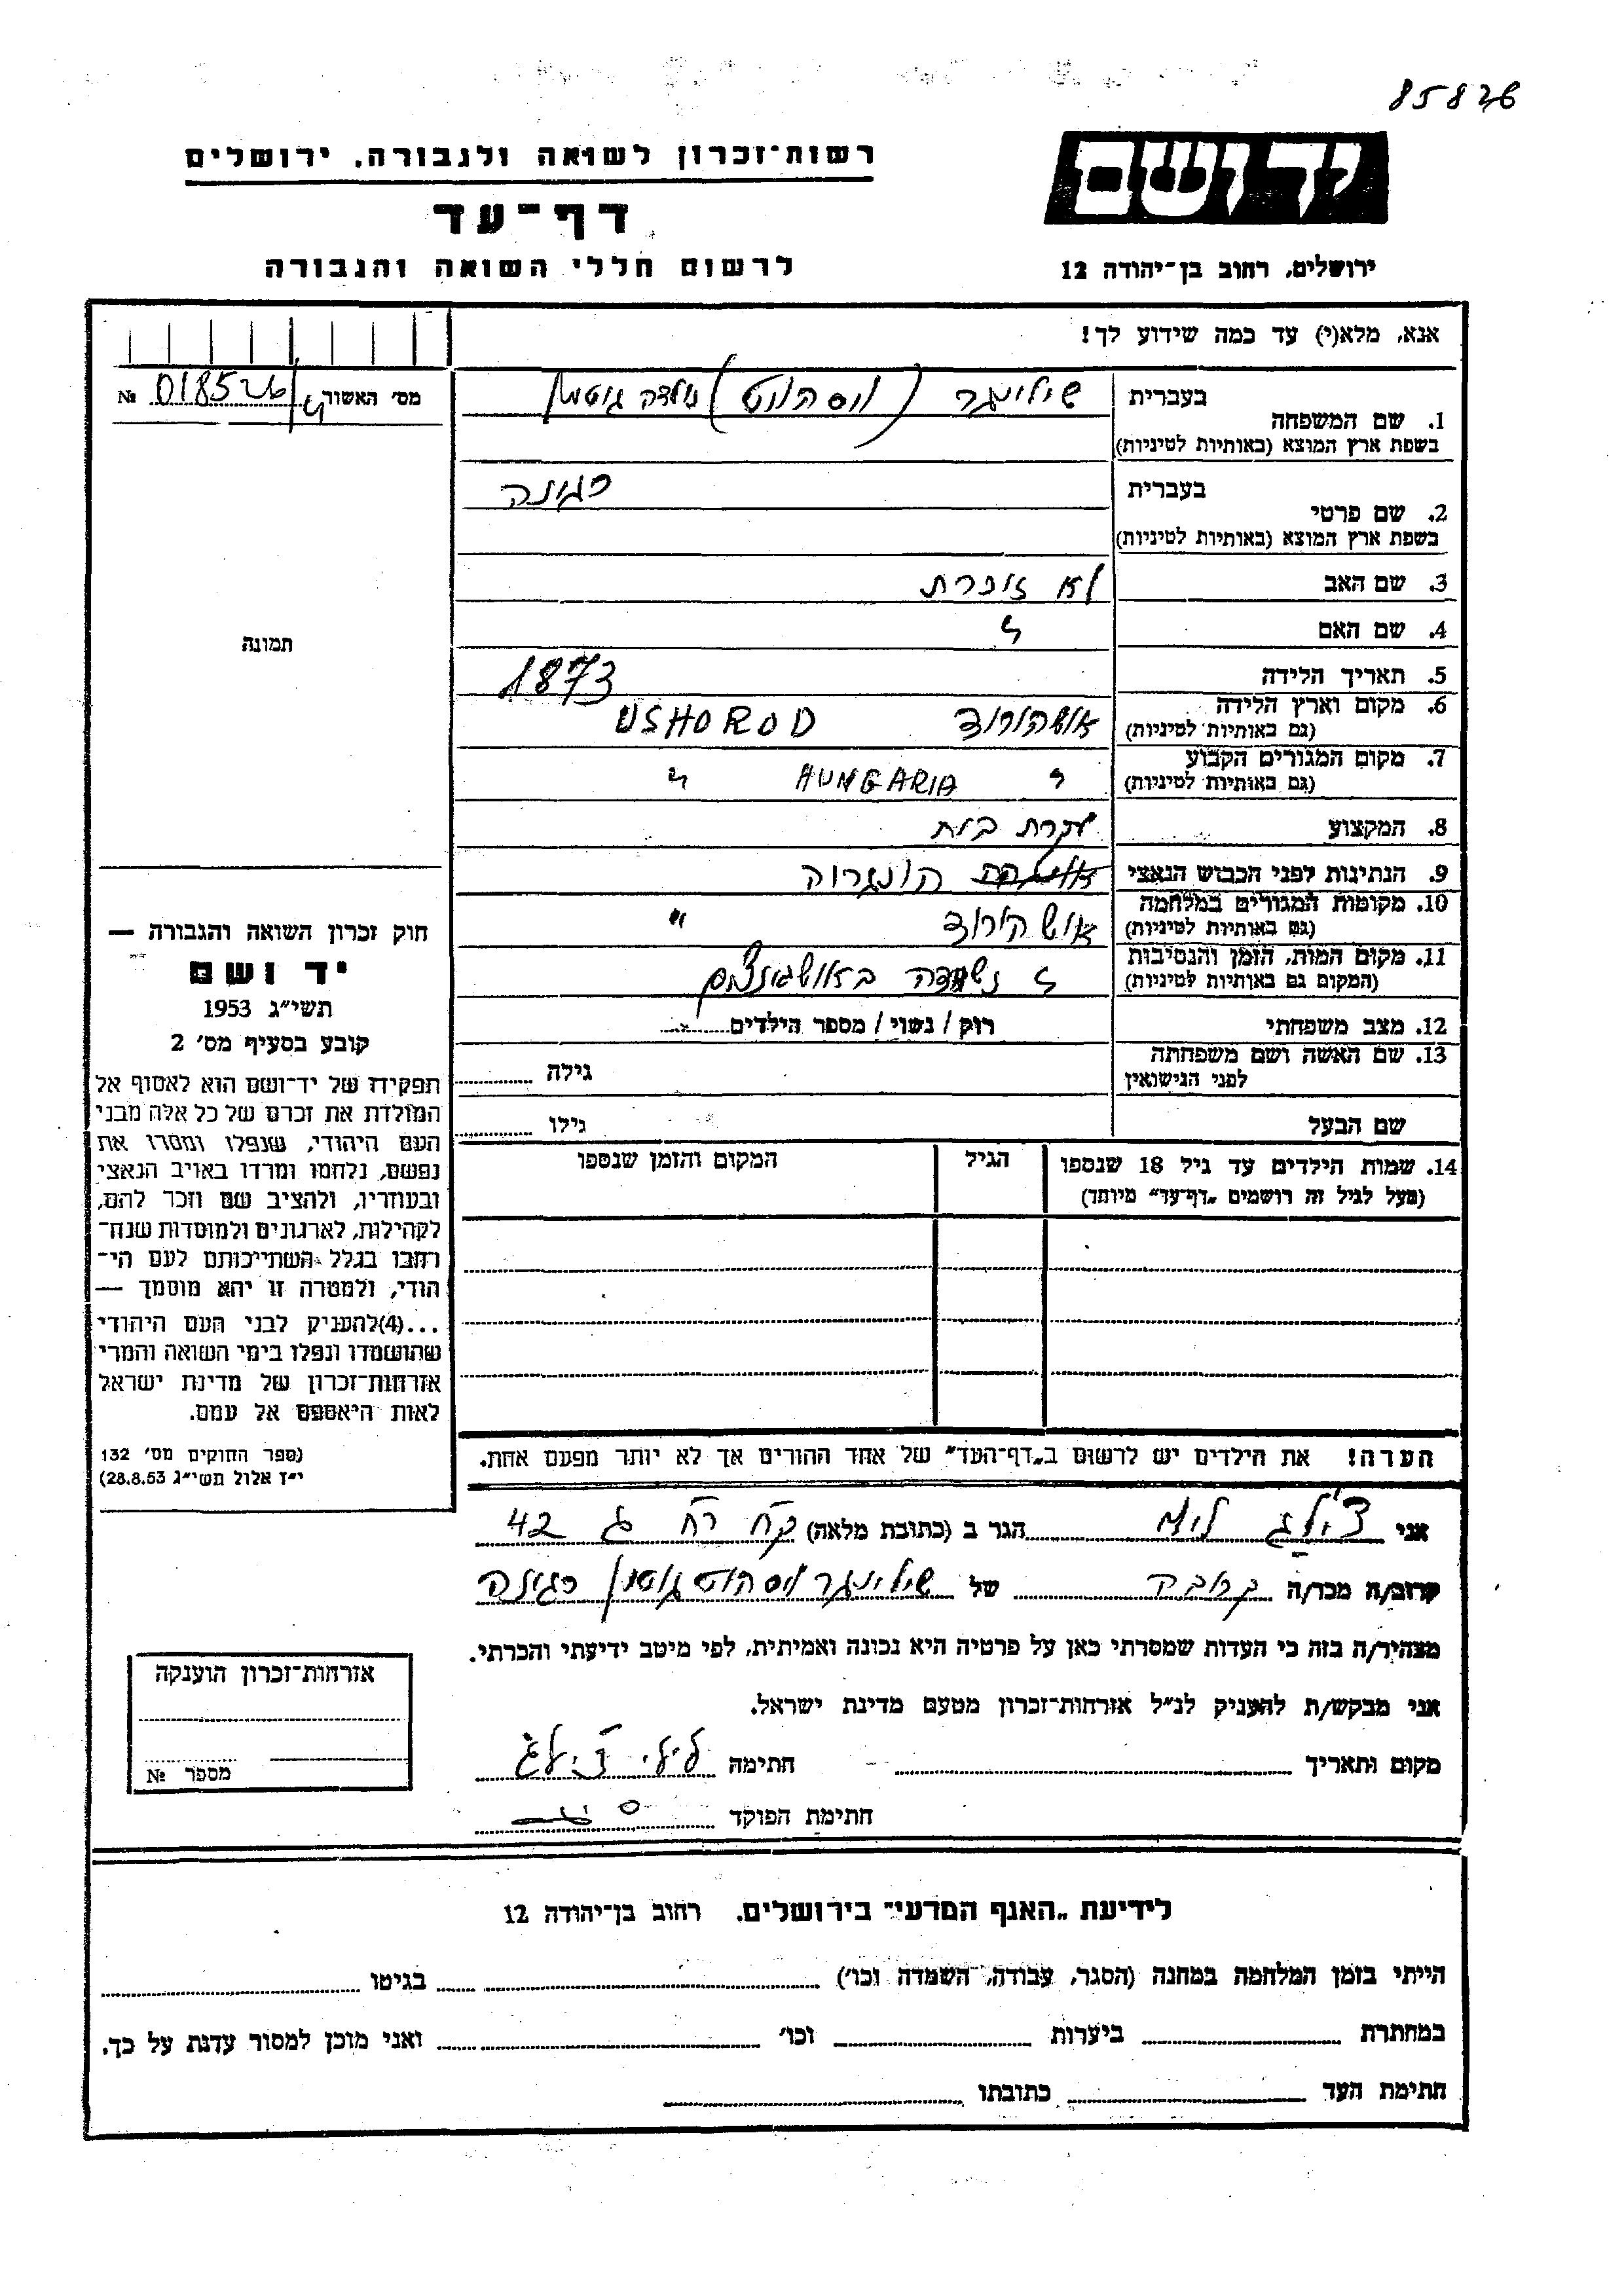 85826
יד ושם
רשות־זכרון לשואה ולגבורה, ירושלים
דף־עד
לרשום חללי השואה והגבורה
ירושלים, רחוב בן־יהודה 12
אנא, מלא(י) עד כמה שידוע לך!
מס' האשור № 018526
תמונה
חוק זכרון השואה והגבורה —
יד ושם
תשי״ג 1953
קובע בסעיף מס' 2
תפקידו של יד־ושם הוא לאסוף אל
המולדת את זכרם של כל אלה מבני
העם היהודי, שנפלו ומסרו את
נפשם, נלחמו ומרדו באויב הנאצי
ובעוזריו, ולהציב שם וזכר להם,
לקהילות, לארגונים ולמוסדות שנח־
רבו בגלל השתייכותם לעם הי־
הודי, ולמטרה זו יהא מוסמך —
...(4)להעניק לבני העם היהודי
שהושמדו ונפלו בימי השואה והמרי
אזרחות־זכרון של מדינת ישראל
לאות היאספם אל עמם.
(ספר החוקים מס' 132
י״ז אלול תשי״ג 28.8.53)
בעברית שילינגר (ויסהוט) נולדה גוטמן
1. שם המשפחה
בשפת ארץ המוצא (באותיות לטיניות)
בעברית רגינה
2. שם פרטי
בשפת ארץ המוצא (באותיות לטיניות)
3. שם האב לא זוכרת
4. שם האם "
5. תאריך הלידה 1873
6. מקום וארץ הלידה אושהורוד USHOROD
(גם באותיות לטיניות)
7. מקום המגורים הקבוע " HUNGARIA "
(גם באותיות לטיניות)
8. המקצוע עקרת בית
9. הנתינות לפני הכבוש הנאצי הונגריה
10. מקומות המגורים במלחמה אושהורוד "
(גם באותיות לטיניות)
11. מקום המות, הזמן והנסיבות נשמדה באושוויץ
(המקום גם באותיות לטיניות)
12. מצב משפחתי רוק / נשוי / מספר הילדים
13. שם האשה ושם משפחתה גילה
לפני הנישואין
שם הבעל גילו
14. שמות הילדים עד גיל 18 שנספו הגיל המקום והזמן שנספו
(מעל לגיל זה רושמים „דף־עד״ מיוחד)
הערה! את הילדים יש לרשום ב„דף־העד״ של אחד ההורים אך לא יותר מפעם אחת.
אני הגר ב (כתובת מלאה) 42
קרוב/ה מכר/ה קרובה של שילינגר ויסהוט גוטמן רגינה
מצהיר/ה בזה כי העדות שמסרתי כאן על פרטיה היא נכונה ואמיתית, לפי מיטב ידיעתי והכרתי.
אני מבקש/ת להעניק לנ״ל אזרחות־זכרון מטעם מדינת ישראל.
מקום ותאריך חתימה לילי
חתימת הפוקד
אזרחות־זכרון הוענקה
מספר №
לידיעת „האגף המדעי״ בירושלים. רחוב בן־יהודה 12
הייתי בזמן המלחמה במחנה (הסגר, עבודה, השמדה וכו') בגיטו
במחתרת ביערות וכו' ואני מוכן למסור עדות על כך.
חתימת העד כתובתו